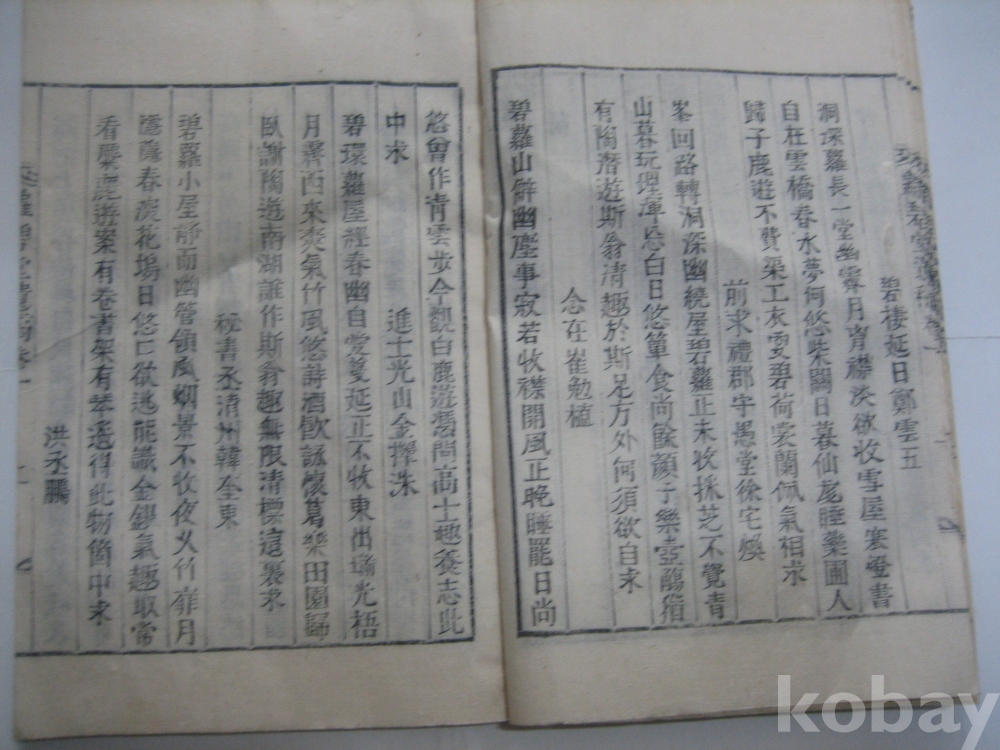 碧棲延日鄭雲五
洞深蘿長一堂幽霽月宵襟淡欲收雪屋寒燈書
自在雲橋春水夢何悠柴關日暮仙尨睡藥圃人
歸子鹿遊不費渠工灰雯碧荷裳蘭佩氣相求
前求禮郡守愚堂徐宅煥
峯回路轉洞深幽繞屋碧蘿正未收採芝不覺青
山暮玩理渾忘白日悠簞食尚餘顏子樂壺觴猶
有陶潛遊斯翁清趣於斯足方外何須欲自求
念在崔勉植
碧蘿山僻幽塵事寂若收襟開風正晚睡罷日尚
悠曾作青雲步今觀白鹿遊憑問高士趣養志此
中求
進士光山金擇洙
碧環蘿屋經春幽自愛蔓延正不收東出瑞光梧
月霽西來爽氣竹風悠詩酒歡詠懷葛樂田園歸
臥謝陶遊南湖誰作斯翁趣無限清標這裏求
秘書丞清州韓奎東
碧蘿小屋靜而幽管領風烟景不收夜乂竹扉月
隱隱春深花塢日悠口欲逃能識金鏐氣趣取常
看麋鹿遊案有卷書架有琴還得此物箇中求
洪丞鵬
kobay